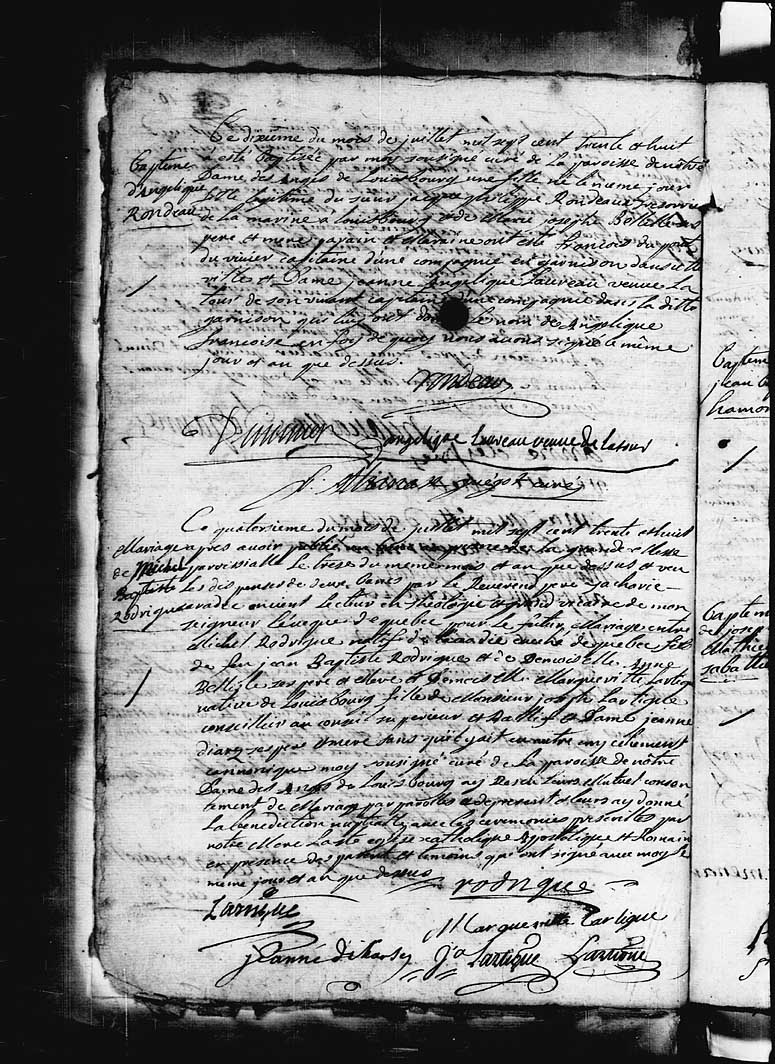 Ce dixieme du mois de juillet mil sept cent trente et huit
Capteme d'Angelique Rondeau
a esté baptisée par moy sousigné curé de la paroisse de notre
Dame des Anges de Louisbourg une fille né le meme jour
fille legitime du sieur jacque philippe Rondeau tresorier
de la marine a Louisbourg et de Marie josephe Bellisle ses
pere et mere parain et Maraine ont esté francois du pont
du vivier capitaine d'une compagnie en garnison dans cette
ville et Dame jeanne Angelique Laureau veuve La
tour de son vivant capitaine d'une compagnie dans la ditte
garnison qui luy ont donné Le nom de Angelique
francoise en foy de quoy nous avons signé le même
jour et an que dessus.
Rondeau
Duvivier angelique Laureau veuve de latour
f.
Ce quatorsieme du mois de juillet mil sept cent trente et huit
Mariage de Michel Baptiste Rodrigue
apres avoir publié la grande Messe
paroissialle Le trese du meme mois et an que dessus et veu
Les dispenses de deux bans par Le Reverend pere Zacharie
ancient Lecteur en theologie et grand vicaire de mon
seigneur L'eveque de quebec pour Le futur Mariage entre
Michel Rodrigue natif de Lacadie eveché de quebec fils
de feu jean Baptiste Rodrigue et de Demoiselle Anne
Bellisle ses pere et Mere et Demoiselle Margueritte Lartigue
native de Louisbourg fille de Monsieur joseph Lartigue
conseiller au conseil superieur et Baillif et Dame jeanne
diharse ses pere et mere sans quil y ait eu autre empechement
cannonique moy sousigné curé de La paroisse de notre
Dame des Anges de Louisbourg ay Receu Leurs Mutuel consen
tement de Mariage par parolles de present et Leurs ay donné
La benediction nuptialle avec les ceremonies prescrites par
notre Mere La Ste eglise catholique Apostolique et Romain
en presence des parents et temoins qui ont signé avec moy Le
meme jour et an que dessus
rodrigue
Lartigue
Margueritte Lartigue
jeanne diharse Jo Lartigue
Capteme
jean
Capteme
de josep
Mathie
sabatie